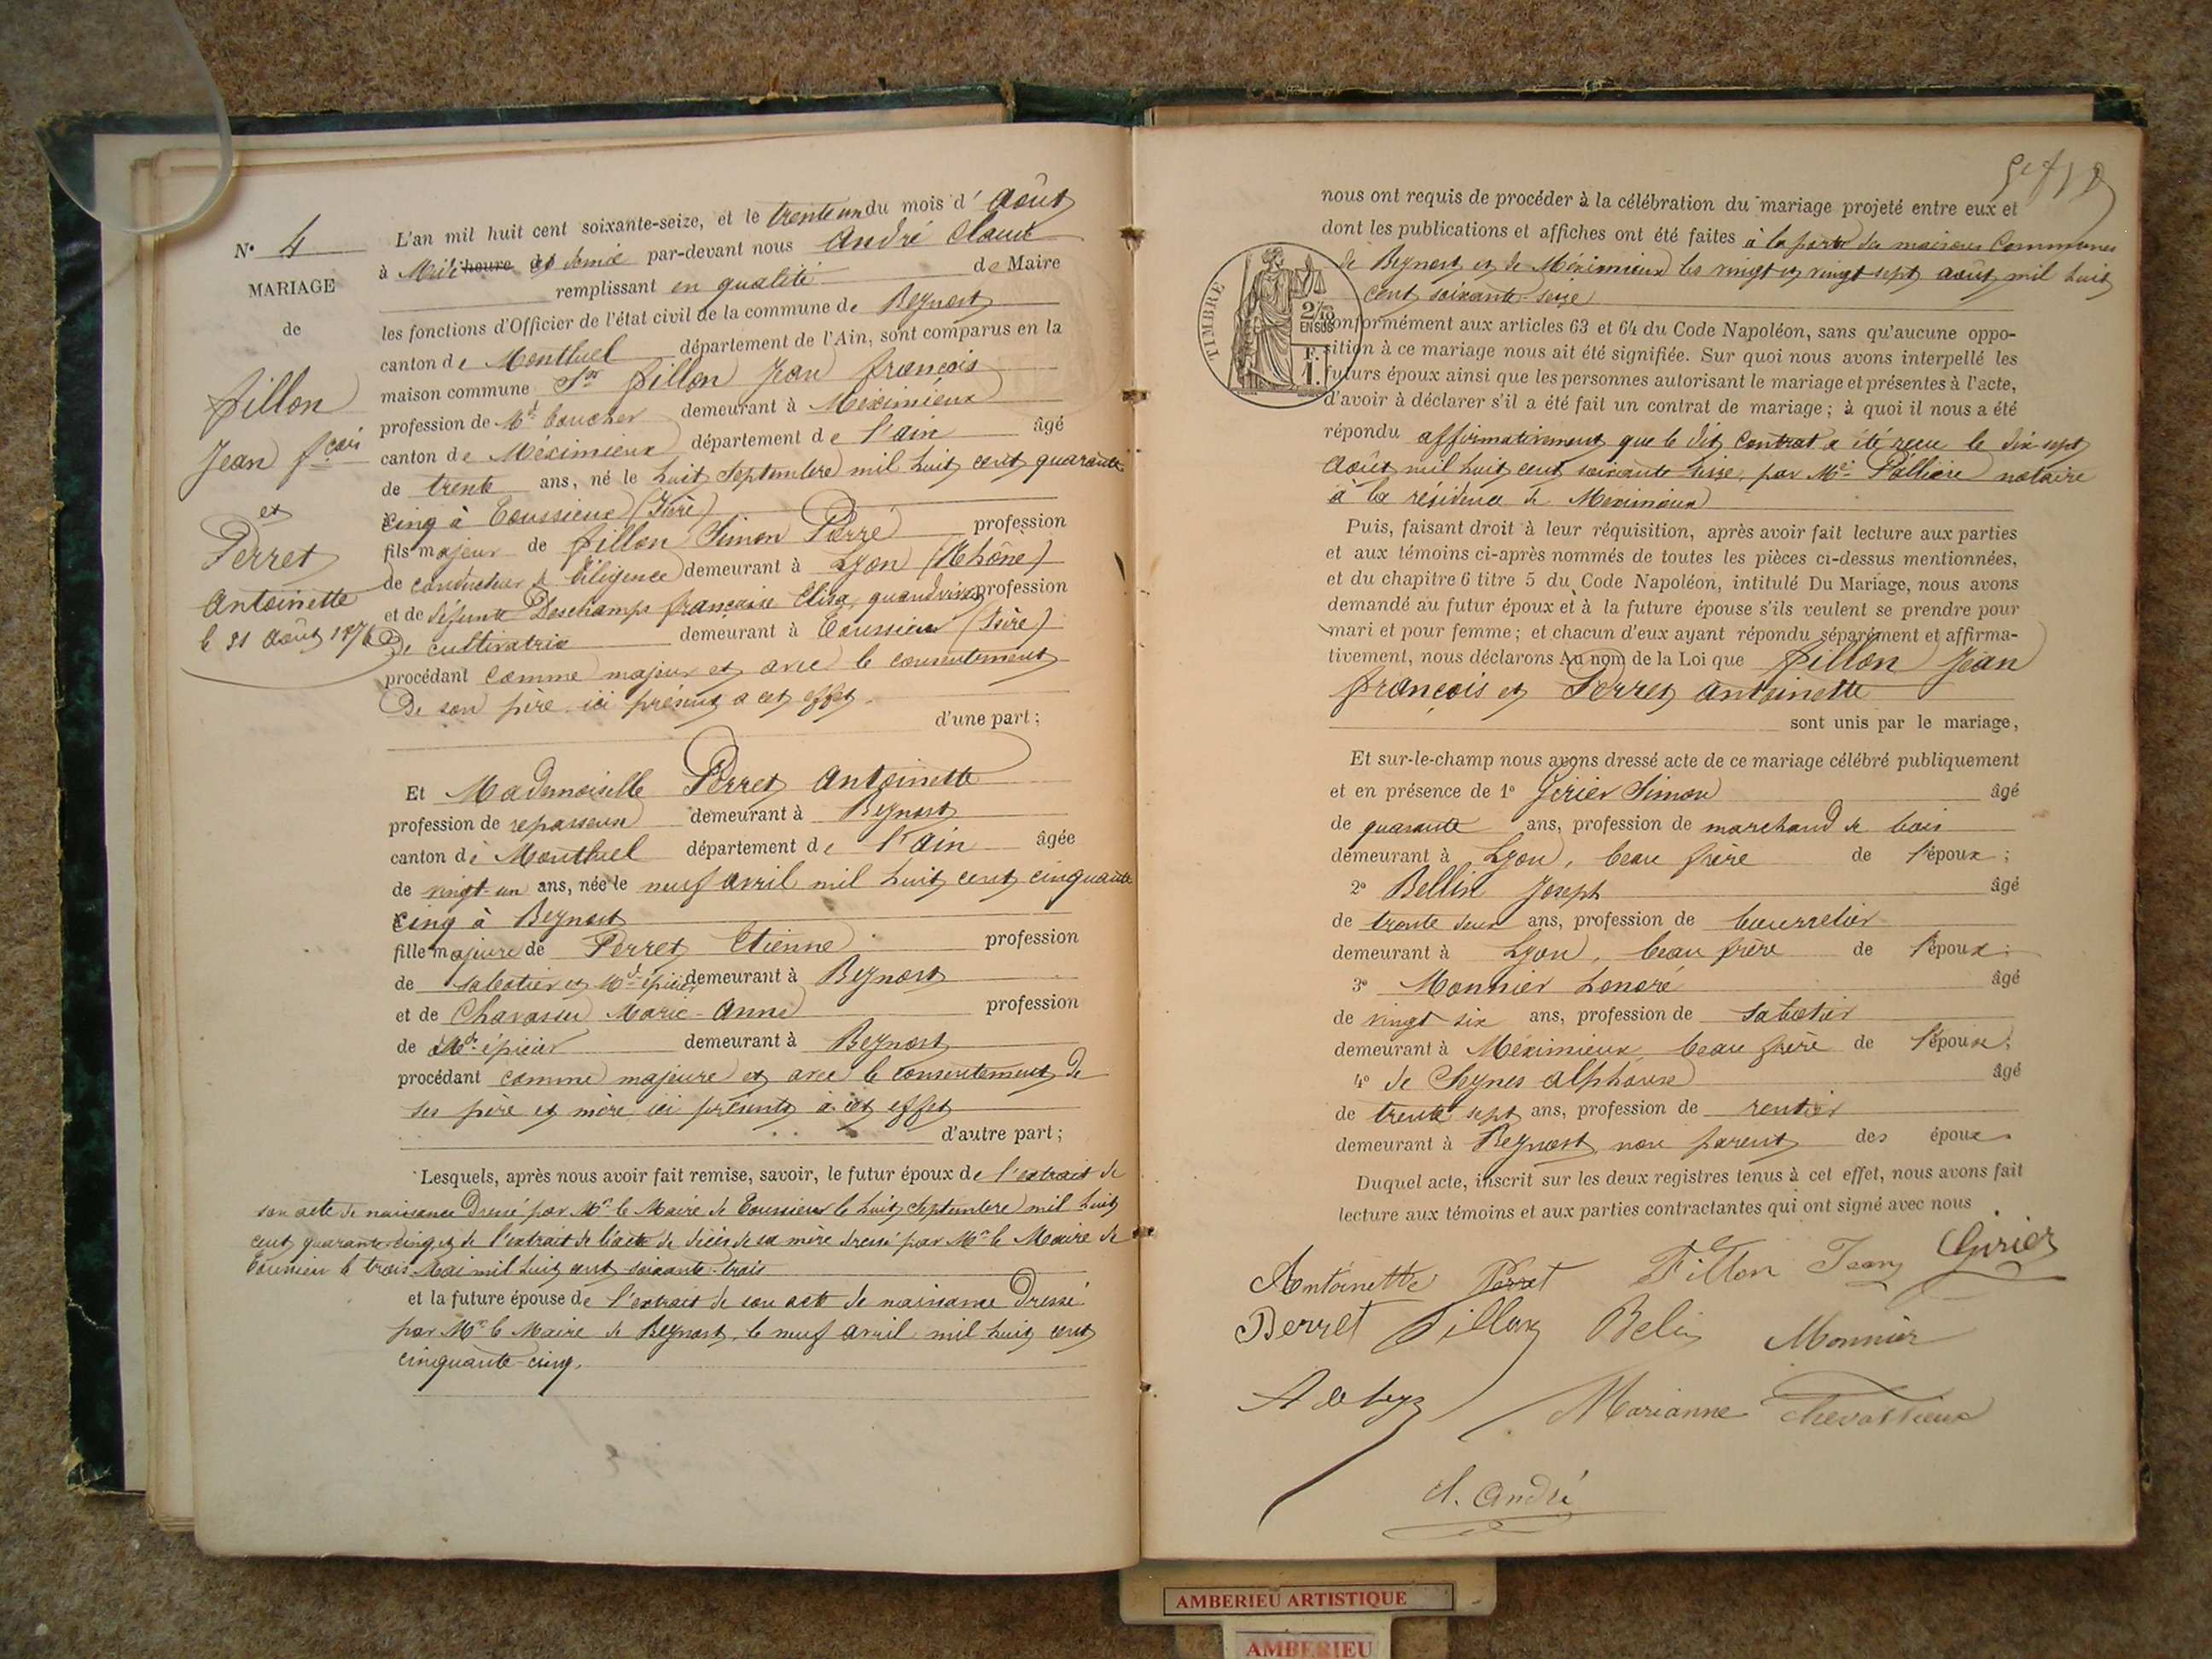 N° 4
MARIAGE
de
fillon
Jean fçois
et
Perret
Antoinette
le 31 août 1876
L'an mil huit cent soixante-seize, et le trente un du mois d'août
à Midi heure et demie par-devant nous André Claude
remplissant en qualité de Maire
les fonctions d'Officier de l'état civil de la commune de Beynost
canton de Montluel département de l'Ain, sont comparus en la
maison commune Sr fillon Jean françois
profession de Md boucher demeurant à Meximieux
canton de Méximieux département de l'ain âgé
de trente ans, né le huit Septembre mil huit cent quarante
cinq à Toussieux (Isère)
fils majeur de fillon Simon Pierre profession
de conducteur de diligence demeurant à Lyon (Rhône)
et de défunte Deschamps françoise Elisa, quand vivait profession
De cultivatrice demeurant à Toussieu (Isère)
procédant comme majeur et avec le consentement
De son père ici présent a cet effet.
d'une part;
Et Mademoiselle Perret Antoinette
profession de repasseuse demeurant à Beynost
canton de Montluel département de l'Ain âgée
de vingt-un ans, née le neuf avril mil huit cent cinquante
cinq à Beynost
fille majeure de Perret Etienne profession
de sabotier et Md épicier demeurant à Beynost
et de Chavassu Marie-Anne profession
de Mde épicier demeurant à Beynost
procédant comme majeure et avec le consentement de
ses père et mère ici présents à cet effet
d'autre part;
Lesquels, après nous avoir fait remise, savoir, le futur époux de l'extrait de
son acte de naissance Dressé par Mr le Maire de Toussieux le huit Septembre mil huit
cent quarante-cinq et de l'extrait de l'acte de décès de sa mère dressé par Mr le Maire de
Toussieu le trois Mai mil huit cent soixante-trois
et la future épouse de l'extrait de son acte de naissance Dressé
par Mr le Maire de Beynost, le neuf avril mil huit cent
cinquante-cinq.
nous ont requis de procéder à la célébration du mariage projeté entre eux et
dont les publications et affiches ont été faites à la porte des maisons Communes
de Beynost et de Méximieux les vingt et vingt-sept août mil huit
cent soixante-seize
TIMBRE
2/10
EN SUS
F.
1.
conformément aux articles 63 et 64 du Code Napoléon, sans qu'aucune oppo-
sition à ce mariage nous ait été signifiée. Sur quoi nous avons interpellé les
futurs époux ainsi que les personnes autorisant le mariage et présentes à l'acte,
d'avoir à déclarer s'il a été fait un contrat de mariage; à quoi il nous a été
répondu affirmativement que le dit Contrat a été reçu le dix-sept
août mil huit cent soixante seize, par Me Pallière notaire
à la résidence de Meximieux
Puis, faisant droit à leur réquisition, après avoir fait lecture aux parties
et aux témoins ci-après nommés de toutes les pièces ci-dessus mentionnées,
et du chapitre 6 titre 5 du Code Napoléon, intitulé Du Mariage, nous avons
demandé au futur époux et à la future épouse s'ils veulent se prendre pour
mari et pour femme; et chacun d'eux ayant répondu séparément et affirma-
tivement, nous déclarons Au nom de la Loi que fillon Jean
françois et Perret Antoinette
sont unis par le mariage,
Et sur-le-champ nous avons dressé acte de ce mariage célébré publiquement
et en présence de 1° Girier Simon âgé
de quarante ans, profession de marchand de bois
demeurant à Lyon, beau frère de l'époux;
2° Bellin Joseph âgé
de trente deux ans, profession de bourrelier
demeurant à Lyon, beau frère de l'époux;
3° Monnier honoré âgé
de vingt six ans, profession de sabotier
demeurant à Méximieux, beau frère de l'épouse;
4° de Seynes alphonse âgé
de trente sept ans, profession de rentier
demeurant à Beynost, non parent des époux
Duquel acte, inscrit sur les deux registres tenus à cet effet, nous avons fait
lecture aux témoins et aux parties contractantes qui ont signé avec nous
Antoinette Perret Fillon Jean Girier
Perret fillon Belin Monnier
Marianne Chevassieux
cl. André
AMBERIEU ARTISTIQUE
AMBERIEU